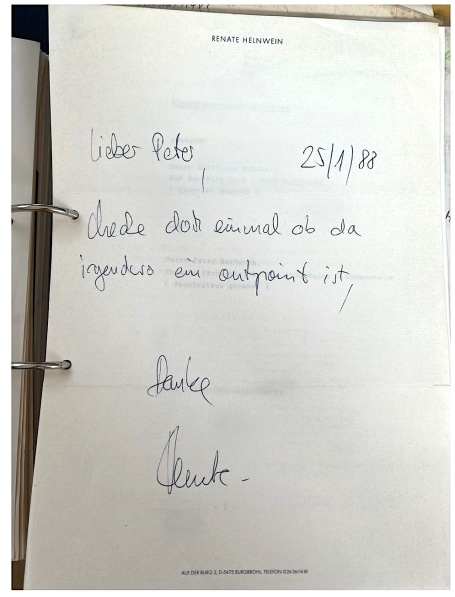 RENATE HELNWEIN
Lieber Peter,
25/1/88
checke doch einmal ob da
irgendwo ein outpoint ist,
Danke
Renate -
AUF DER BURG 2, D-5475 BURGBROHL, TELEFON